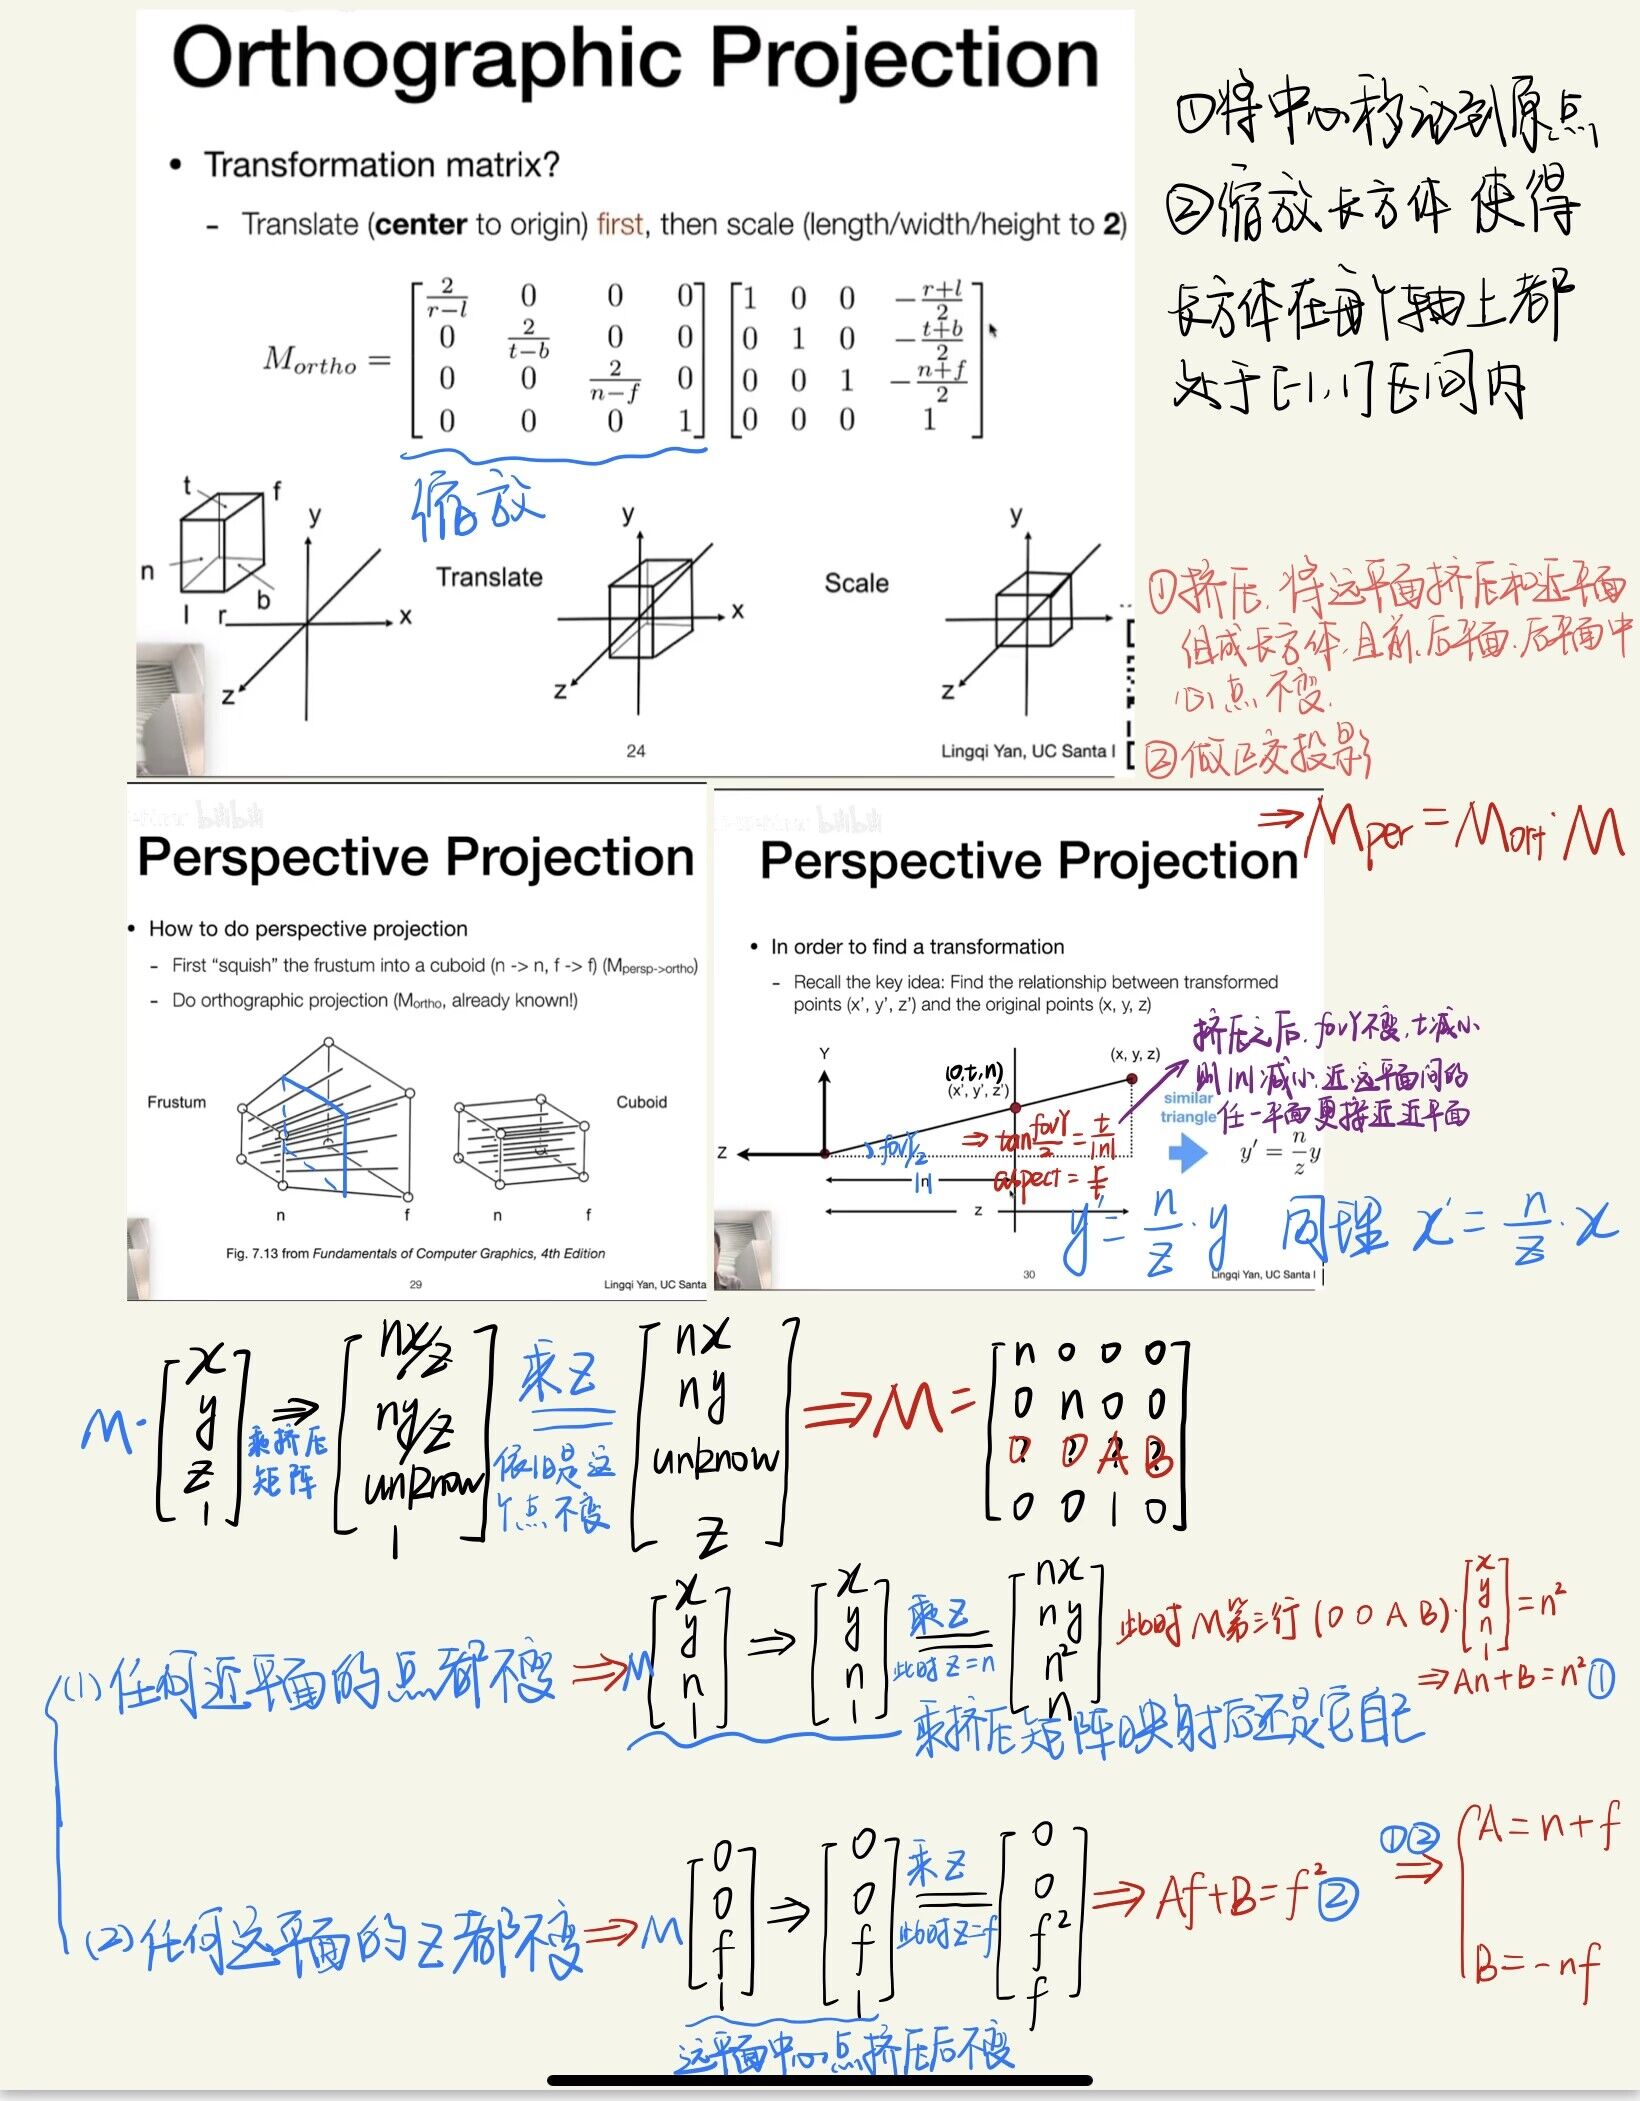 Orthographic Projection
• Transformation matrix?
- Translate (center to origin) first, then scale (length/width/height to 2)
M_ortho = [2/(r-l) 0 0 0; 0 2/(t-b) 0 0; 0 0 2/(n-f) 0; 0 0 0 1] [1 0 0 -(r+l)/2; 0 1 0 -(t+b)/2; 0 0 1 -(n+f)/2; 0 0 0 1]
缩放
t f n l r b y x z
Translate
y x z
Scale
y z
24
Lingqi Yan, UC Santa
①将中心移动到原点
②缩放长方体 使得
长方体在每个轴上都
处于[-1,1]区间内
①挤压,将远平面挤压和近平面
组成长方体,且前、后平面、后平面中
心点不变.
②做正交投影
⇒Mper=Mort·M
Perspective Projection
• How to do perspective projection
- First “squish” the frustum into a cuboid (n -> n, f -> f) (Mpersp->ortho)
- Do orthographic projection (Mortho, already known!)
Frustum
Cuboid
n f n f
Fig. 7.13 from Fundamentals of Computer Graphics, 4th Edition
29
Lingqi Yan, UC Santa
Perspective Projection
• In order to find a transformation
- Recall the key idea: Find the relationship between transformed
points (x', y', z') and the original points (x, y, z)
Y
(0,t,n)
(x', y', z')
(x, y, z)
Z
fovY/2
|n|
z
⇒tan fovY/2 = t/|n|
aspect = r/t
挤压之后,fovY不变,t减小
则|n|减小,近、远平面间的
任一平面更接近近平面
similar
triangle
y' = n/z y
y'= n/z · y 同理 x'= n/z · x
30
Lingqi Yan, UC Santa
M·[x y z 1] ⇒ [nx/z ny/z unknow 1] 乘z [nx ny unknow z] ⇒M= [n 0 0 0; 0 n 0 0; 0 0 A B; 0 0 1 0]
乘挤压
矩阵
依旧是这
个点不变
(1)任何近平面的点都不变⇒M[x y n 1] ⇒ [x y n 1] 乘z [nx ny n² n]
此时z=n
此时M第三行(0 0 A B)·[x y n 1]=n²
⇒An+B=n²①
乘挤压矩阵映射后还是它自己
(2)任何远平面的z都不变⇒M[0 0 f 1] ⇒ [0 0 f 1] 乘z [0 0 f² f] ⇒Af+B=f²②
此时z=f
①②⇒
A=n+f
B=-nf
远平面中心点挤压后不变